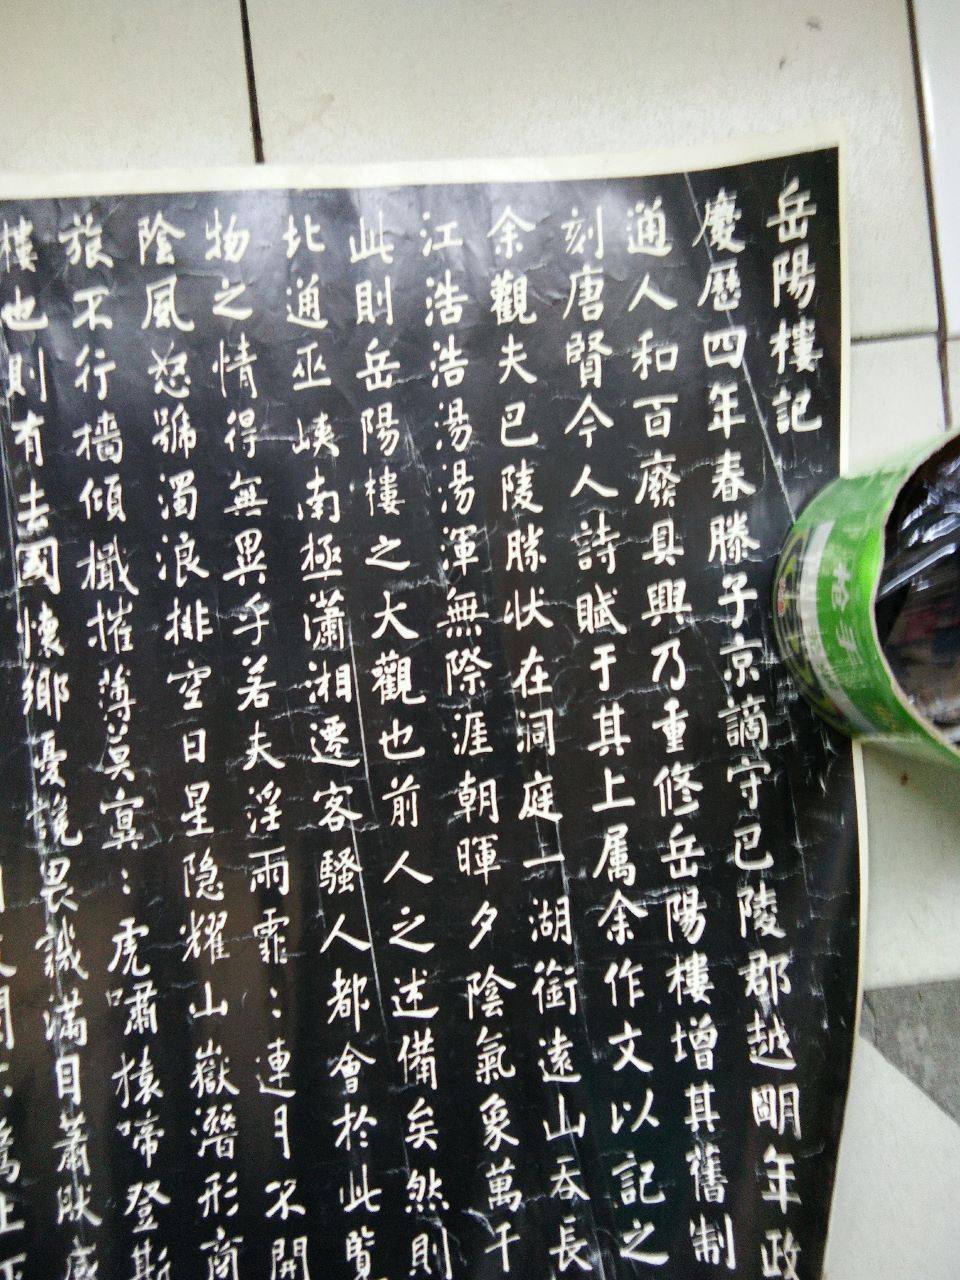 岳陽樓記
慶歷四年春滕子京謫守巴陵郡越明年政
通人和百廢具興乃重修岳陽樓增其舊制
刻唐賢今人詩賦于其上属余作文以記之
余觀夫巴陵勝状在洞庭一湖銜遠山吞長
江浩浩湯湯渾無際涯朝暉夕陰氣象萬千
此則岳陽樓之大觀也前人之述備矣然則
北通巫峽南極瀟湘遷客騷人都會於此覧
物之情得無異乎若夫淫雨霏:連月不開
陰風怒號濁浪排空日星隐耀山嶽潛形商
旅不行檣傾檝摧薄暮冥:虎嘯猿啼登斯
樓也則有去國懷鄉憂讒畏譏滿目蕭然感